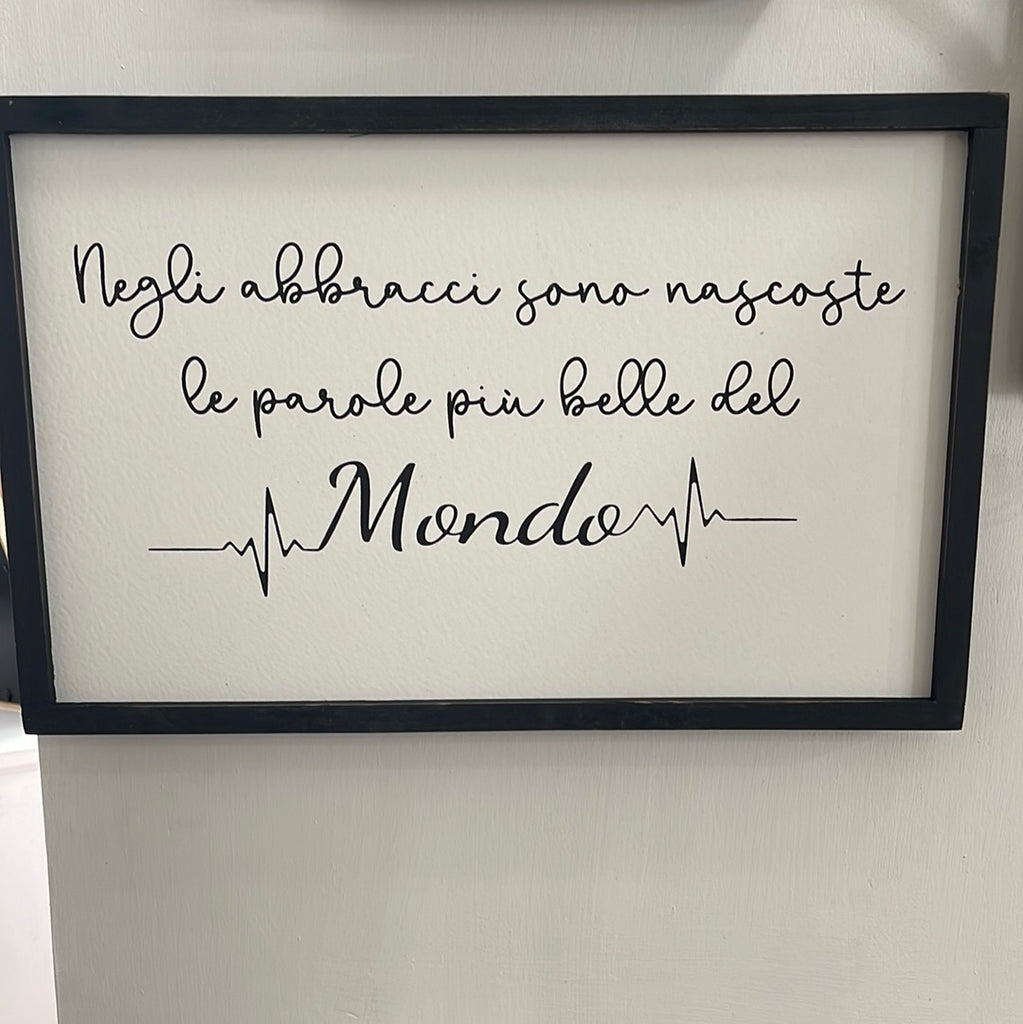 Negli abbracci sono nascoste
le parole più belle del
Mondo